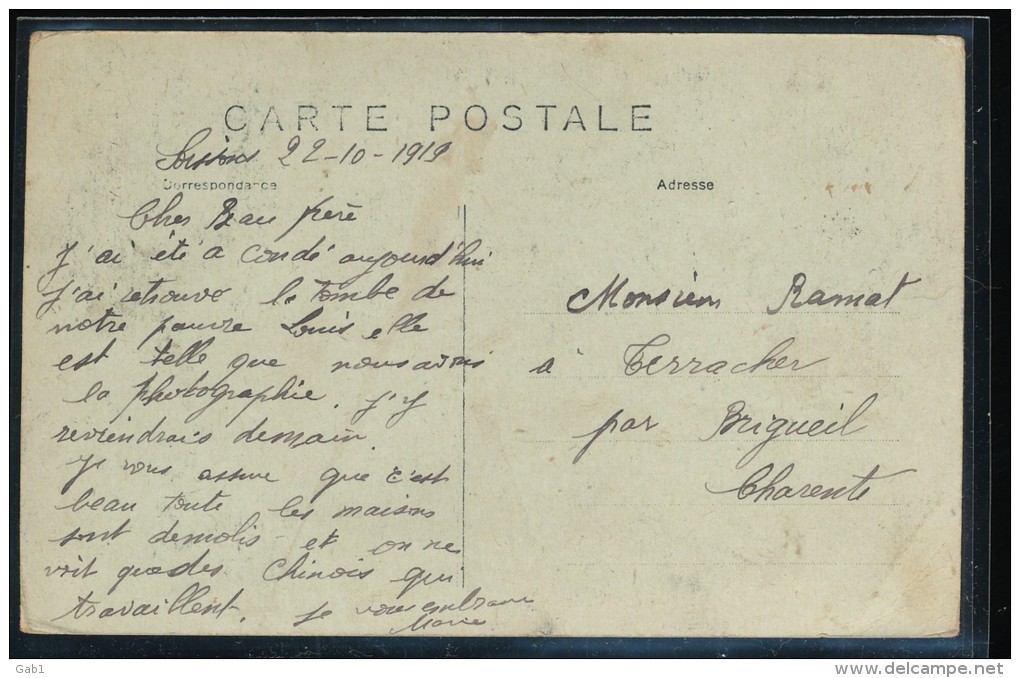 CARTE POSTALE
Soissons 22-10-1919
Correspondance
Adresse
Cher Beau frère
J'ai été a Condé aujourd'hui
J'ai retrouvé la tombe de
notre pauvre Louis elle
est telle que nous avons
la photographie. J'y
reviendrais demain
Je vous assure que c'est
beau toute les maisons
sont demolis et on ne
voit que des Chinois qui
travaillent. Je vous embrasse
Marie
Monsieur Ramat
à Terracher
par Brigueil
Charente
Gab1
http://www.delcampe.net